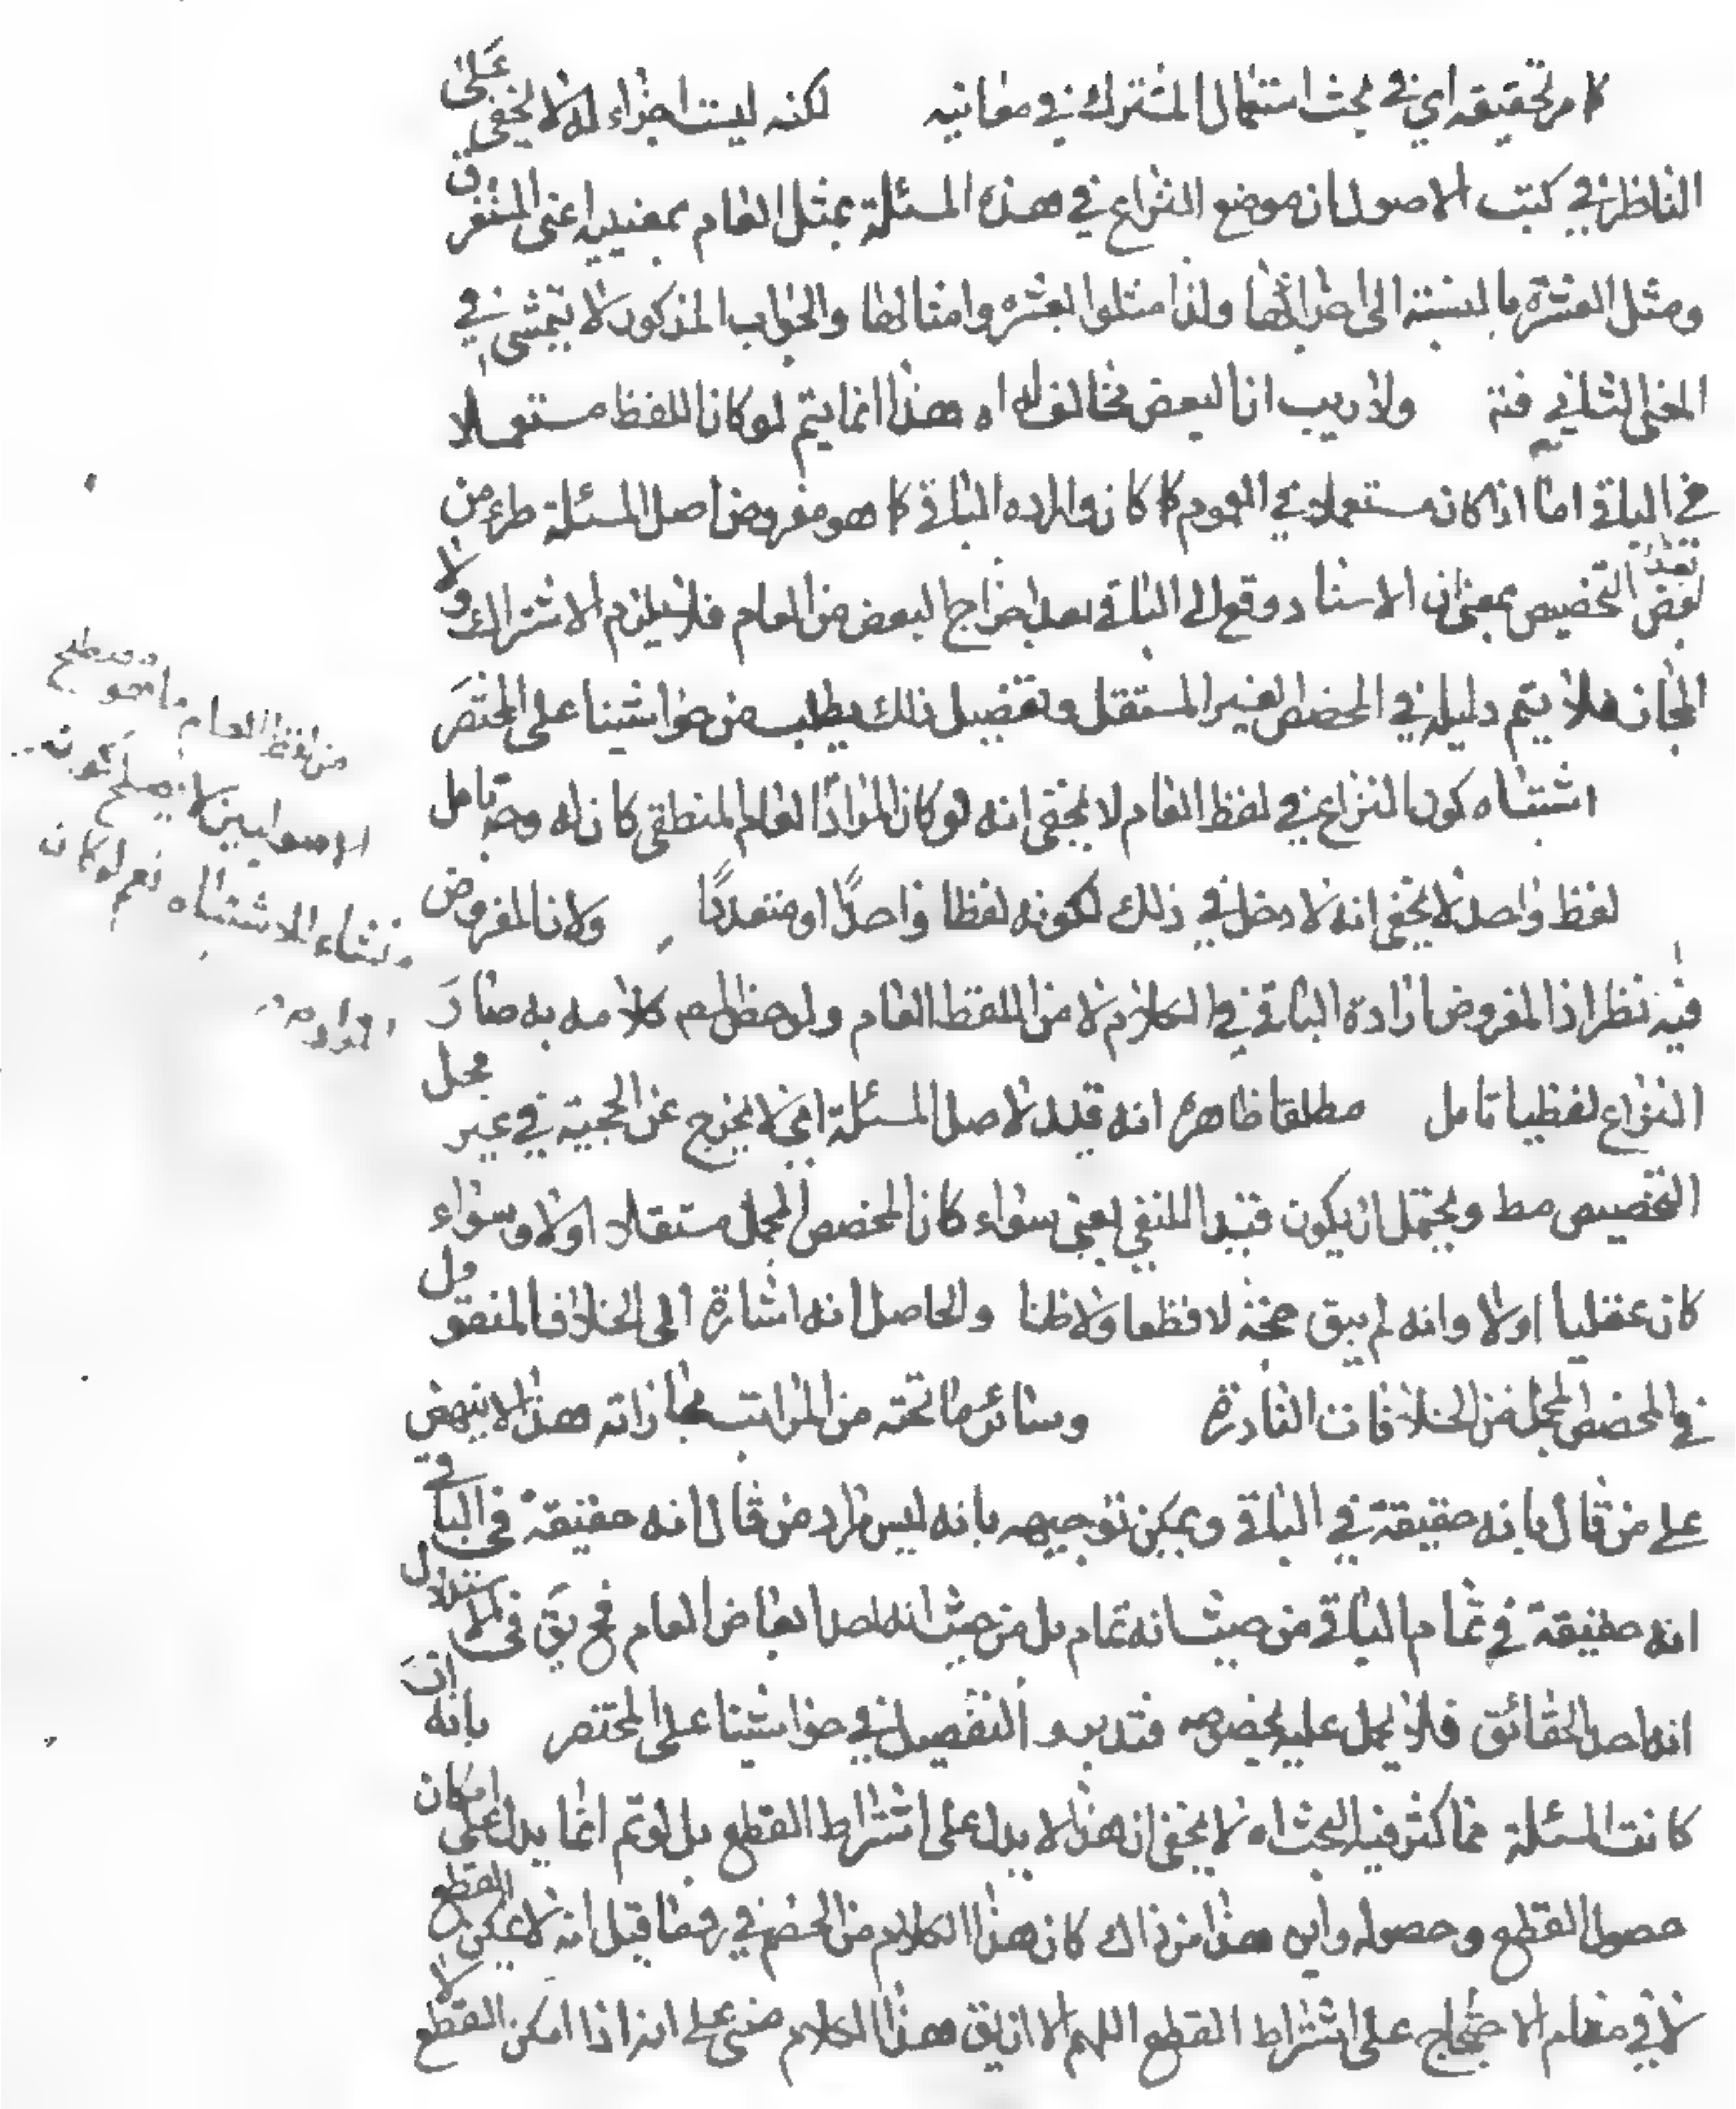 كما مر تحقيقه اي في بحث استعمال المشترك في معانيه لكنه ليست اجزاء له لا يخفى على
الناظر في كتب الاصول ان موضع النزاع في هذه المسئلة يمثل العام بمعنييه اعني المنفرق
ومثل العشرة بالنسبة الى اجزائها ولذا مثلوا بعشرة وامثالها والجواب المذكور لا يتمشى في
المعنى الثاني فتم ولا ريب ان البعض مخالف له اه هذا انما يتم لو كان اللفظ مستعملا
في الباقي اما اذا كان مستعملا في العموم كما كان واراده الباقي كما هو مفروض اصل المسئلة طرء من
بعض التخصيص بمعنى ان الاسناد وقع الى الباقي بعد اخراج البعض من العام فلا يلزم الاشتراك ولا
المجاز فلا يتم دليله في المخصص الغير المستقل وتفصيل ذلك يطلب من حواشينا على المختصر
اشتباه كون النزاع في لفظ العام لا يخفى انه لو كان المراد العام المنطقي كان له وجه تامل
لفظ واحد لا يخفى انه لا دخل في ذلك لكونه لفظا واحدًا او متعددًا ولان المفروض
فيه نظر اذ المفروض ارادة الباقي في الكلام لا من اللفظ العام ولو حظ العم كلامه به صار
النزاع لفظيا تامل مطلقا ظاهره انه قيد لاصل المسئلة اي لا يخرج عن الحجية في غير مجمل
التخصيص مط ويحتمل ان يكون قيدا للنفي يعني سواء كان المخصص المجمل مستقلا اولا وسواء
كان عقليا اولا وانه لم يبق حجة لا قطعا ولا ظنا والحاصل انه اشارة الى الخلاف المنقول
في المخصص المجمل من الخلافات النادرة وسائر ما تحته من المراتب مجازاته هذا لا ينهض
على من قال بانه حقيقة في الباقي ويمكن توجيهه بانه ليس مراد من قال انه حقيقة في الباقي
انه حقيقة في تمام الباقي من حيث انه تمام بل من حيث انه احد ابعاض العام فح يق في الاستدلال
انه احد الحقائق فلا يحمل عليه بخصوصه فتدبر والتفصيل في حواشينا على المختصر بانه ان
كانت المسئلة مما كثر فيه البحث اه لا يخفى ان هذا لا يدل على اشتراط القطع بل لو تم انما يدل على امكان
حصول القطع وحصوله واين هذا من ذاك كان هذا الكلام من الخصم في رفع ما قيل انه لا يمكن القطع
لا في مقام الاحتجاج على اشتراط القطع اللهم الا ان يق هذا الكلام مبني على انه اذا امكن القطع لا
من لفظ العام ما هو مصطلح
الاصوليين لا يصلح كونه
منشاء للاشتباه نعم لو كان
المراد منه